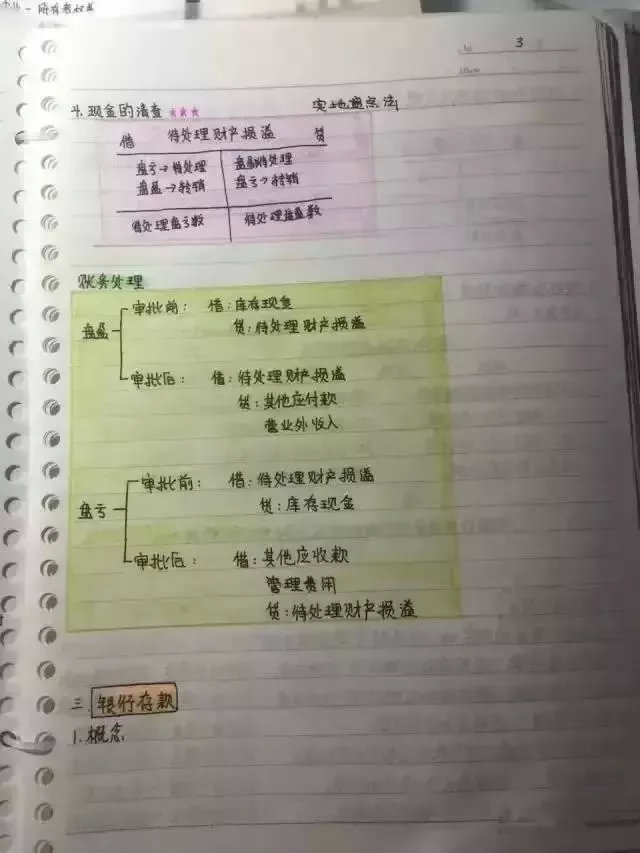 No. 3
Date
4.现金的清查 ★★★ 实地盘点法
借 待处理财产损溢 贷
盘亏→待处理 盘盈待处理
盘盈→转销 盘亏→转销
待处理盘亏数 待处理盘盈数
账务处理
盘盈
审批前: 借:库存现金
贷:待处理财产损溢
审批后: 借:待处理财产损溢
贷:其他应付款
营业外收入
盘亏
审批前: 借:待处理财产损溢
贷:库存现金
审批后: 借:其他应收款
管理费用
贷:待处理财产损溢
三.银行存款
1.概念